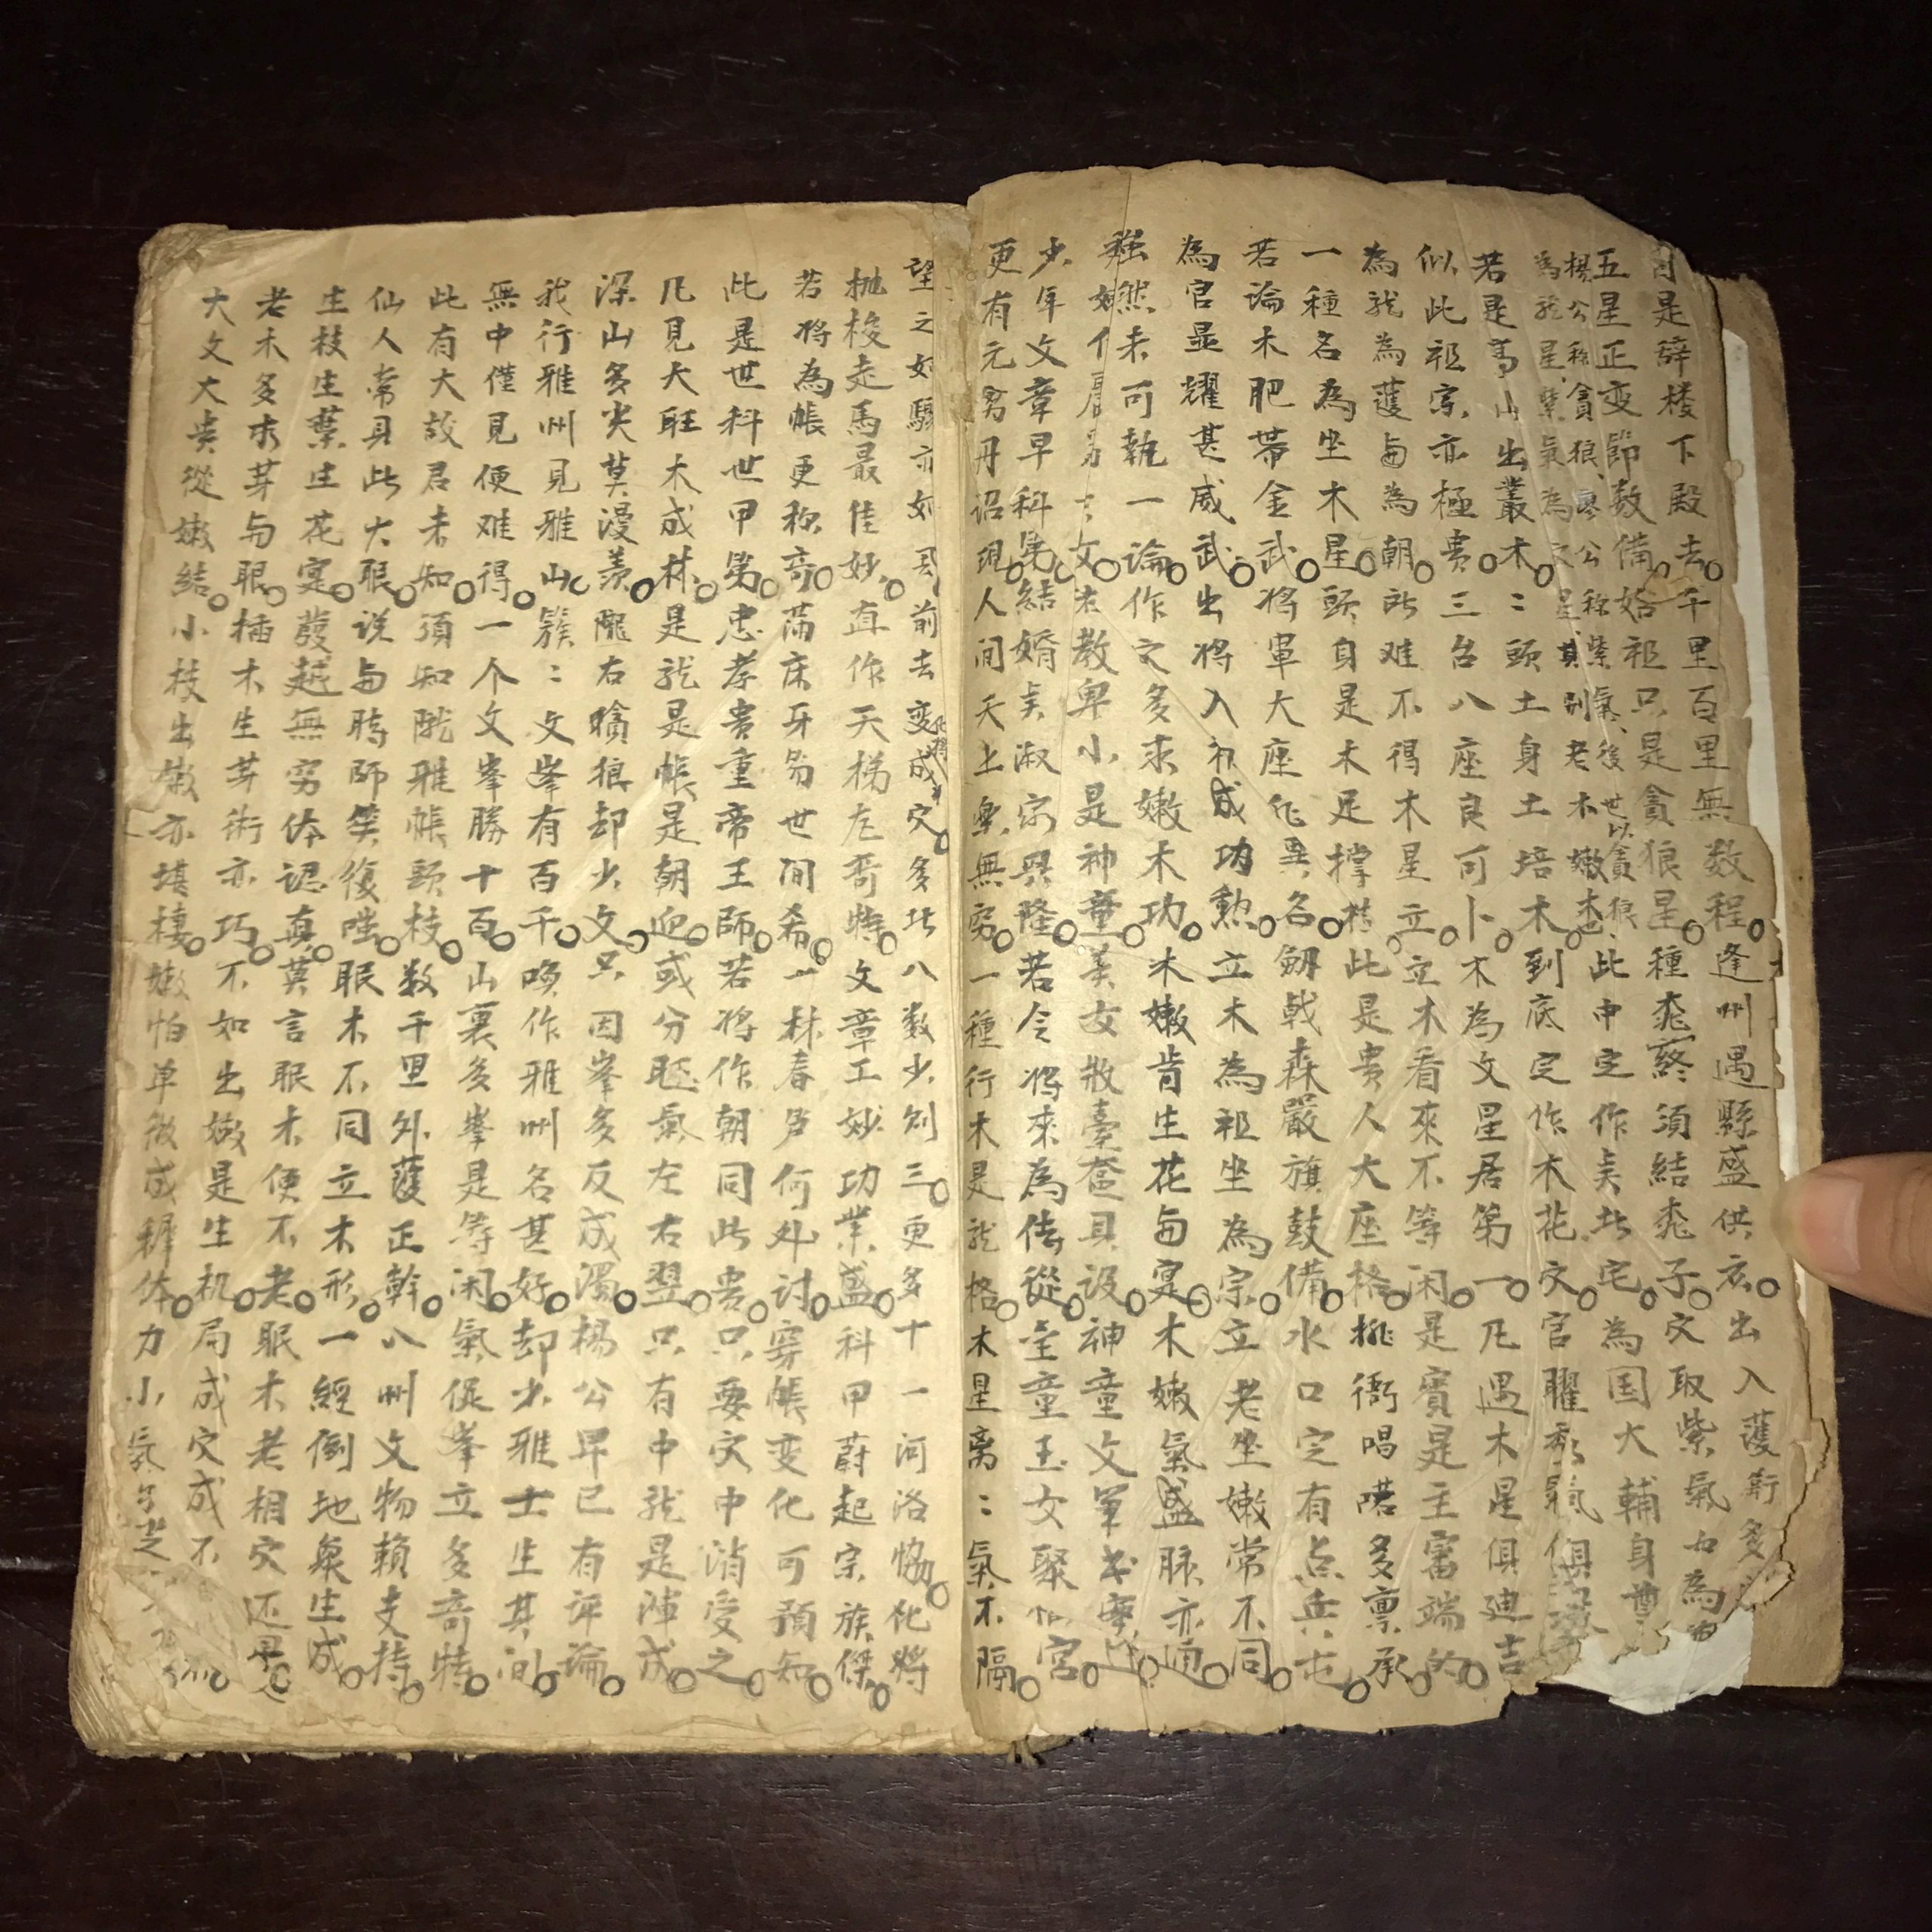 是辞楼下殿去千里百里無数程逢州遇縣盛供衣出入護衛多
五星正变節数備始祖只是貪狼星種菍終須結菍子文取紫氣為
楊公称貪狼廖公称紫氣後世以貪狼
為龍星紫氣為文星其别老木嫩木此中定作真北宅為国大輔身尊
若是高山出叢木〻頭土身土培木到底定作木花文官曜秀氣俱
似此祖宗亦極贵三台八座良可卜木為文星居第一凡遇木星俱迪吉
為龍為護与為朝所难不得木星立立木看來不等闲是賓是主審端的
一種名為坐木星頭身是木足撑此是贵人大座格排衙唱喏多禀承
若論木肥帶金武将軍大座作異名劔戟森嚴旗鼓備水口定有点兵屯
為官显耀甚威武出将入相成功勲立木為祖坐為宗立老坐嫩常不同
雖然未可執一論作文多求嫩木功木嫩肯生花与寔木嫩氣盛脉亦通
文左教卑小是神童美女散臺奩具设神童文筆
少年文章早科第結婚真淑家興隆若令将來為倚從金童玉女聚宫
更有元窮丹诏現人间天上樂無窮一種行木是龍格木星离〻氣不隔
望之如驟亦如前去变成穴多北八数少列三更多十一河洛恊化将
抛梭走馬最佳妙直作天梯左奇特文章工妙功業盛科甲蔚起宗族傑
若将為帳更称奇蒲床牙笏世间希一林春笋何外討穿帳变化可預知
此是世科世甲第忠孝贵重帝王師若将作朝同此贵只要穴中消受之
凡見大旺木成林是龍是帳是朝迎或分胚氣左右翌只有中龍是渾成
深山多尖莫漫羡隴右瞻狼却少文只因峯多反成濁楊公早已有評論
我行雅州見雅山簇〻文峯有百千喚作雅州名甚好却少雅士生其间
無中僅見便难得一个文峯勝十百山裏多峯是等闲氣促峯立多奇特
此有大故君未知須知隴雅帳頭枝数千里外護正幹八州文物賴支持
仙人常具此大眼说与時師笑復嗤眠木不同立木形一經倒地象生成
生枝生葉生花寔蕟越無窮体認真莫言眠木便不老眠木老相穴还
老木多求芽与眼插木生芽術亦巧不如出嫩是生机局成穴成不
大文大贵從嫩結小枝出嫩亦堪棲嫩怕单微成穉体力小氣